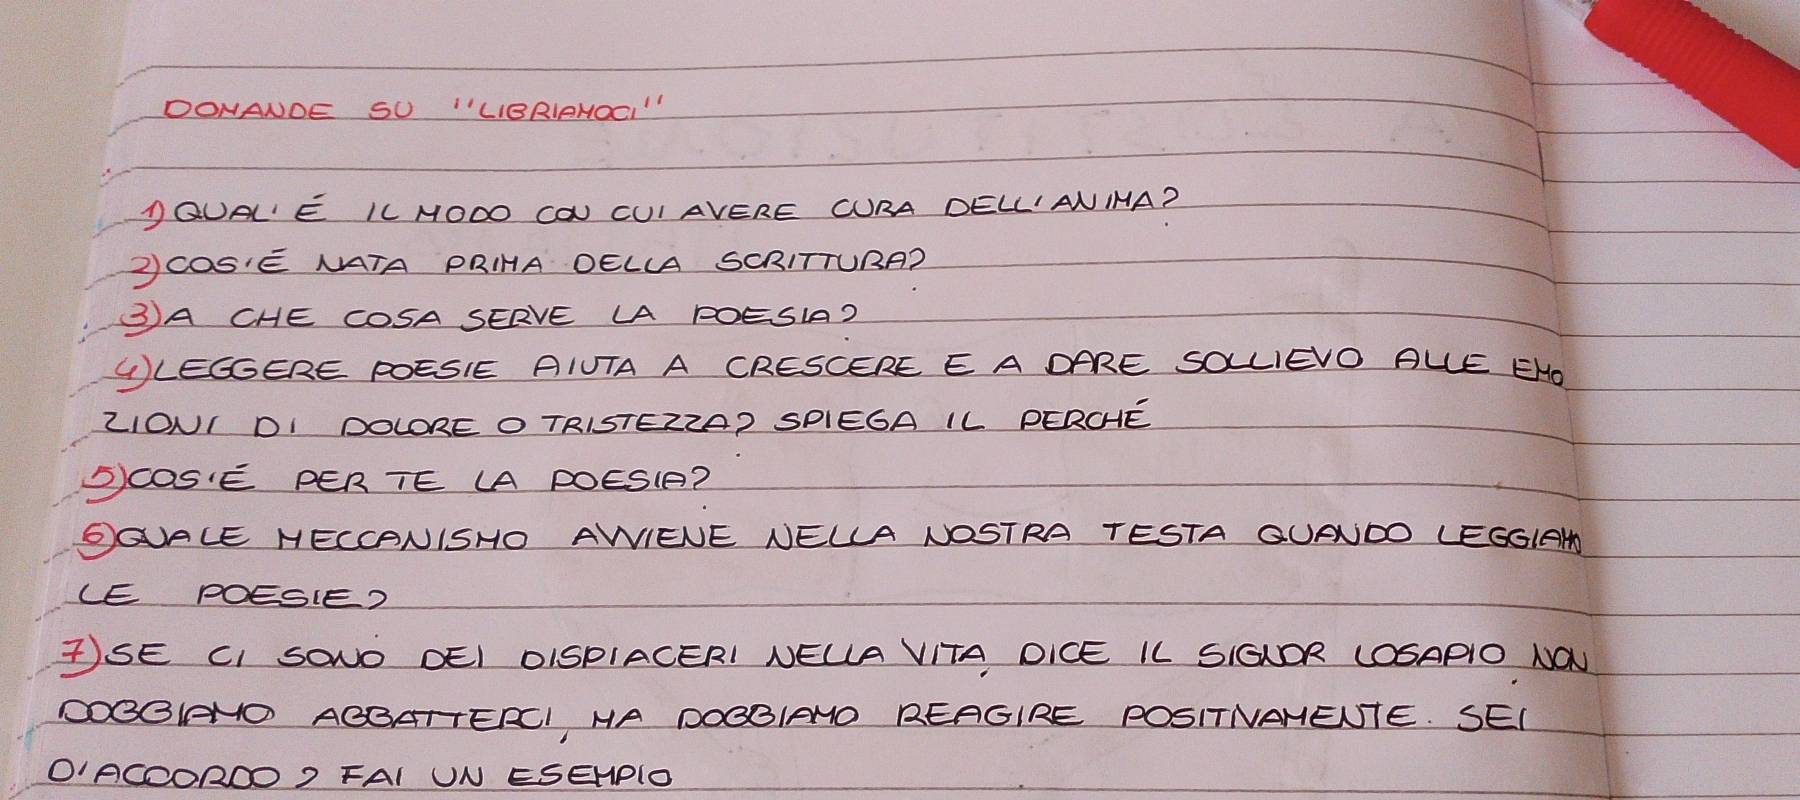 DOMANDE SU "LIBRIAMOCI"
1) QUAL'É IL MODO CON CUI AVERE CURA DELL'ANIMA?
2) COS'É NATA PRIMA DELLA SCRITTURA?
3) A CHE COSA SERVE LA POESIA?
4) LEGGERE POESIE AIUTA A CRESCERE E A DARE SOLLIEVO ALLE EMO
ZIONI DI DOLORE O TRISTEZZA? SPIEGA IL PERCHÉ
5) COS'É PER TE LA POESIA?
6) QUALE MECCANISMO AVVIENE NELLA NOSTRA TESTA QUANDO LEGGIAMO
LE POESIE?
7) SE CI SONO DEI DISPIACERI NELLA VITA, DICE IL SIGNOR LOSAPIO, NON
DOBBIAMO ABBATTERCI, MA DOBBIAMO REAGIRE POSITIVAMENTE. SEI
D'ACCORDO? FAI UN ESEMPIO